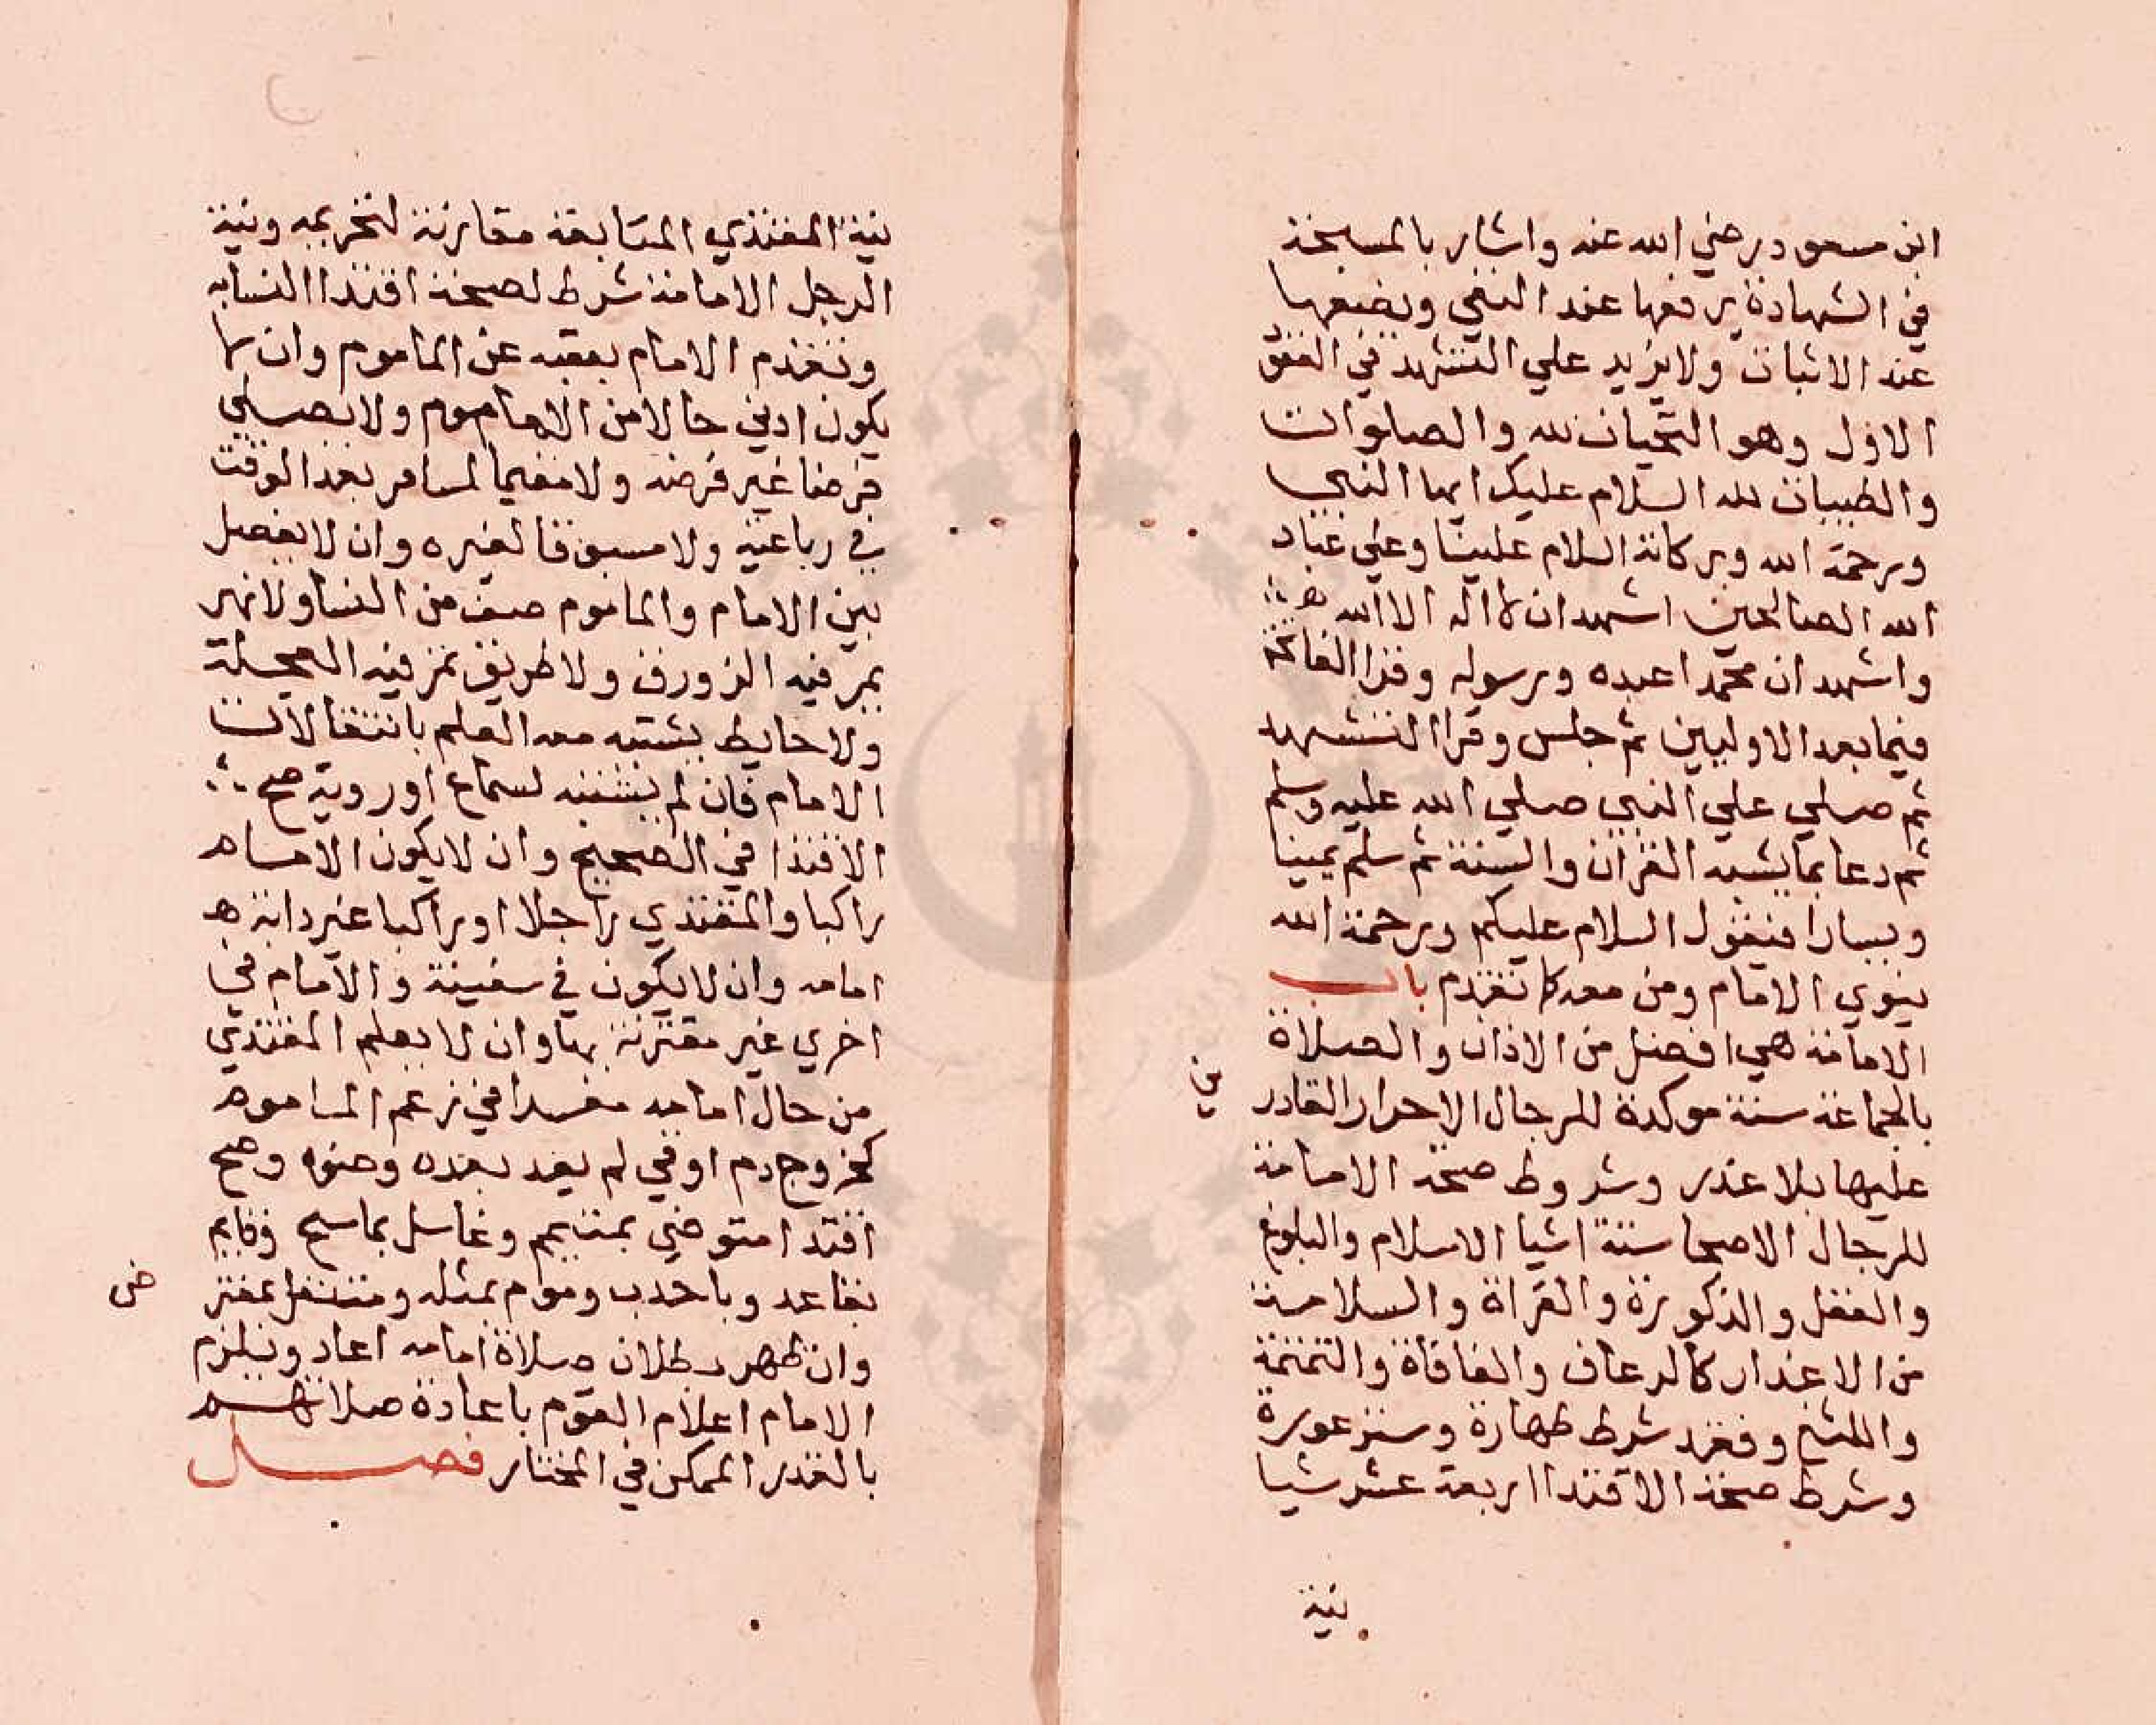 ابن مسعود رضي الله عنه واشار بالمسبحة
في الشهادة يرفعها عند النفي ويضعها
عند الاثبات ولا يزيد علي التشهد في القعود
الاول وهو التحيات لله والصلوات
والطيبات لله السلام عليك ايها النبي
ورحمة الله وبركاته السلام علينا وعلي عباد
الله الصالحين اشهد ان لا اله الا الله
واشهد ان محمدا عبده ورسوله وقرا الفاتحة
فيما بعد الاوليين ثم جلس وقرا التشهد
ثم صلي علي النبي صلي الله عليه وسلم
ثم دعا بما يشبه القران والسنة ثم سلم يمينا
ويسارا فيقول السلام عليكم ورحمة الله
ينوي الامام ومن معه كما تقدم باب
الامامة هي افضل من الاذان والصلاة
بالجماعة سنة موكدة للرجال الاحرار القادر
ين
عليها بلا عذر وشروط صحة الامامة
للرجال الاصحا ستة اشيا الاسلام والبلوغ
والعقل والذكورة والقراة والسلامة
من الاعذار كالرعاف والفافاة والتمتمة
واللثغ وفقد شرط طهارة وستر عورة
وشرط صحة الاقتدا اربعة عشر شيا
نية
نية المقتدي المتابعة مقارنة لتحريمه ونية
الرجل الامامة شرط لصحة اقتدا النسا به
وتقدم الامام بعقبه عن الماموم وان لا
يكون ادني حالا من الماموم ولا يصلي
فرضا غير فرضه ولا مقيما لمسافر بعد الوقت
في رباعية ولا مسبوقا لغيره وان لا يفصل
بين الامام والماموم صف من النسا ولا نهر
يمر فيه الزورق ولا طريق تمر فيه العجلة
ولا حايط يشتبه معه العلم بانتقالات
الامام فان لم يشتبه لسماع او روية صح
الاقتدا في الصحيح وان لا يكون الامام
راكبا والمقتدي راجلا او راكبا غير دابة
امامه وان لا يكون في سفينة والامام في
اخري غير مقترنة بها وان لا يعلم المقتدي
من حال امامه مفسدا في زعم الماموم
كخروج دم او قي لم يعد بعده وضوه وصح
اقتدا متوضي بمتيمم وغاسل بماسح وقايم
بقاعد وباحدب وموم بمثله ومتنفل بمفتر
ض
وان ظهر بطلان صلاة امامه اعاد ويلزم
الامام اعلام القوم باعادة صلاتهم
بالقدر الممكن في المختار فصل